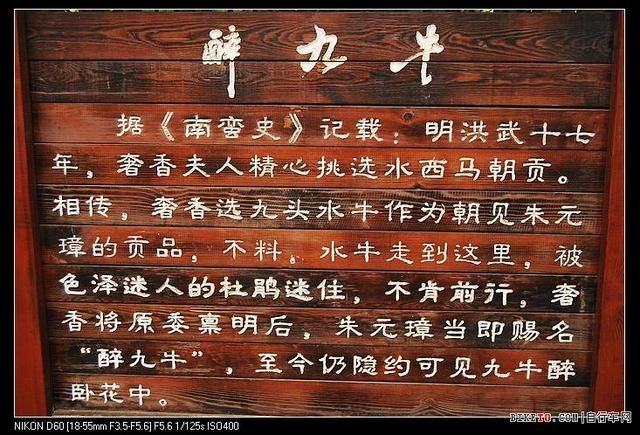 醉九牛
据《南蛮史》记载：明洪武十七
年，奢香夫人精心挑选水西马朝贡。
相传，奢香选九头水牛作为朝见朱元
璋的贡品，不料。水牛走到这里，被
色泽迷人的杜鹃迷住，不肯前行，奢
香将原委禀明后，朱元璋当即赐名
“醉九牛”，至今仍隐约可见九牛醉
卧花中。
NIKON D60 [18-55mm F3.5-F5.6] F5.6 1/125s ISO400
BIKETO.com|自行车网